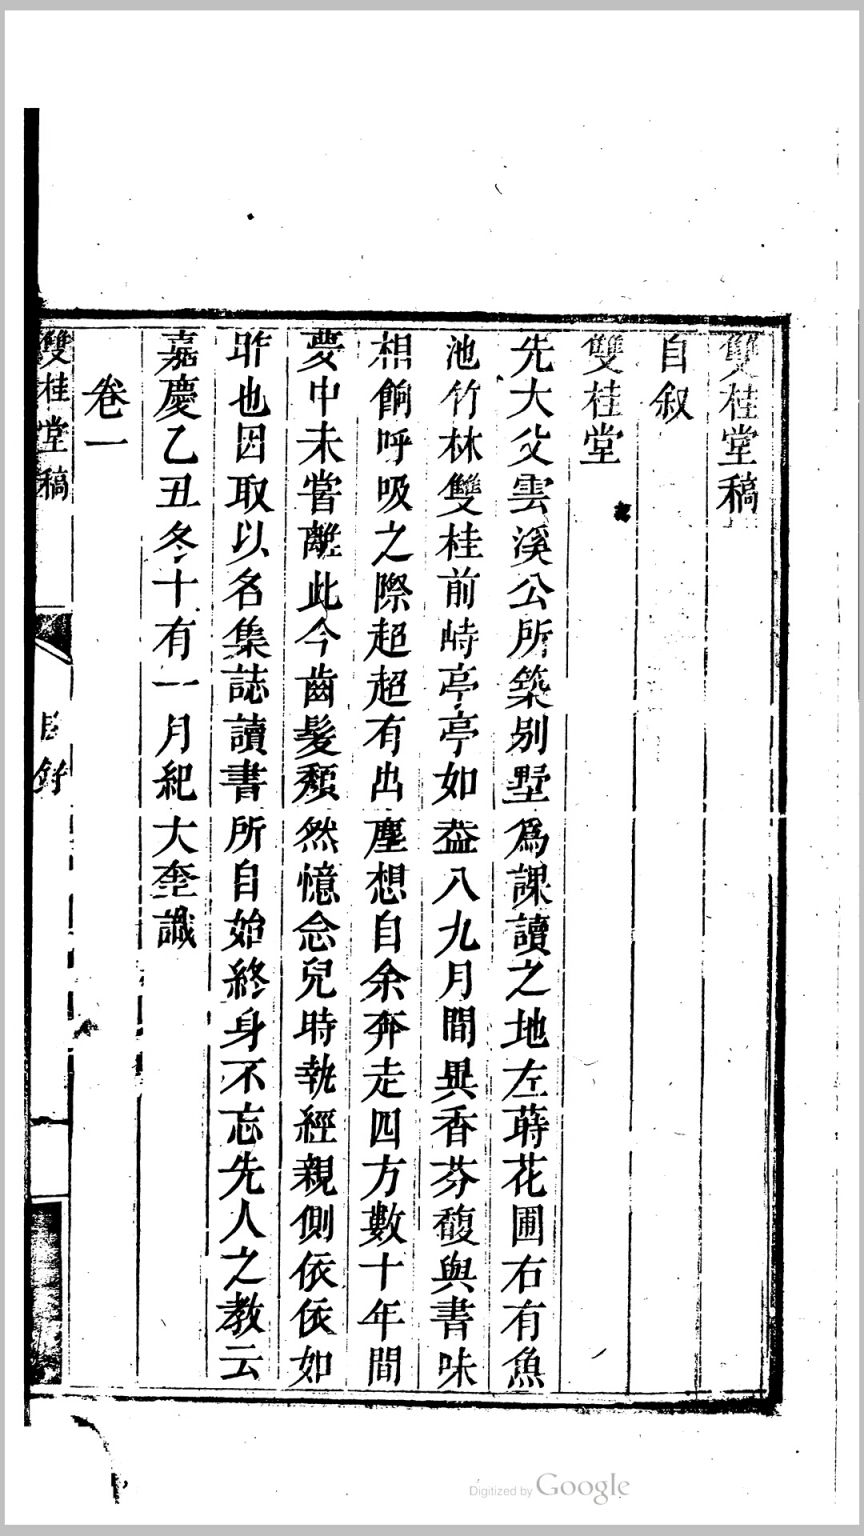 雙桂堂稿
自叙
雙桂堂
先大父雲溪公所築别墅爲課讀之地左蒔花圃右有魚
池竹林雙桂前峙亭亭如葢八九月間異香芬馥與書味
相餉呼吸之際超超有出塵想自余奔走四方數十年間
夢中未嘗離此今齒髮頽然憶念兒時執經親側依依如
昨也因取以名集誌讀書所自始終身不忘先人之教云
嘉慶乙丑冬十有一月紀大奎識
卷一
雙桂堂稿
目錄
Digitized by Google